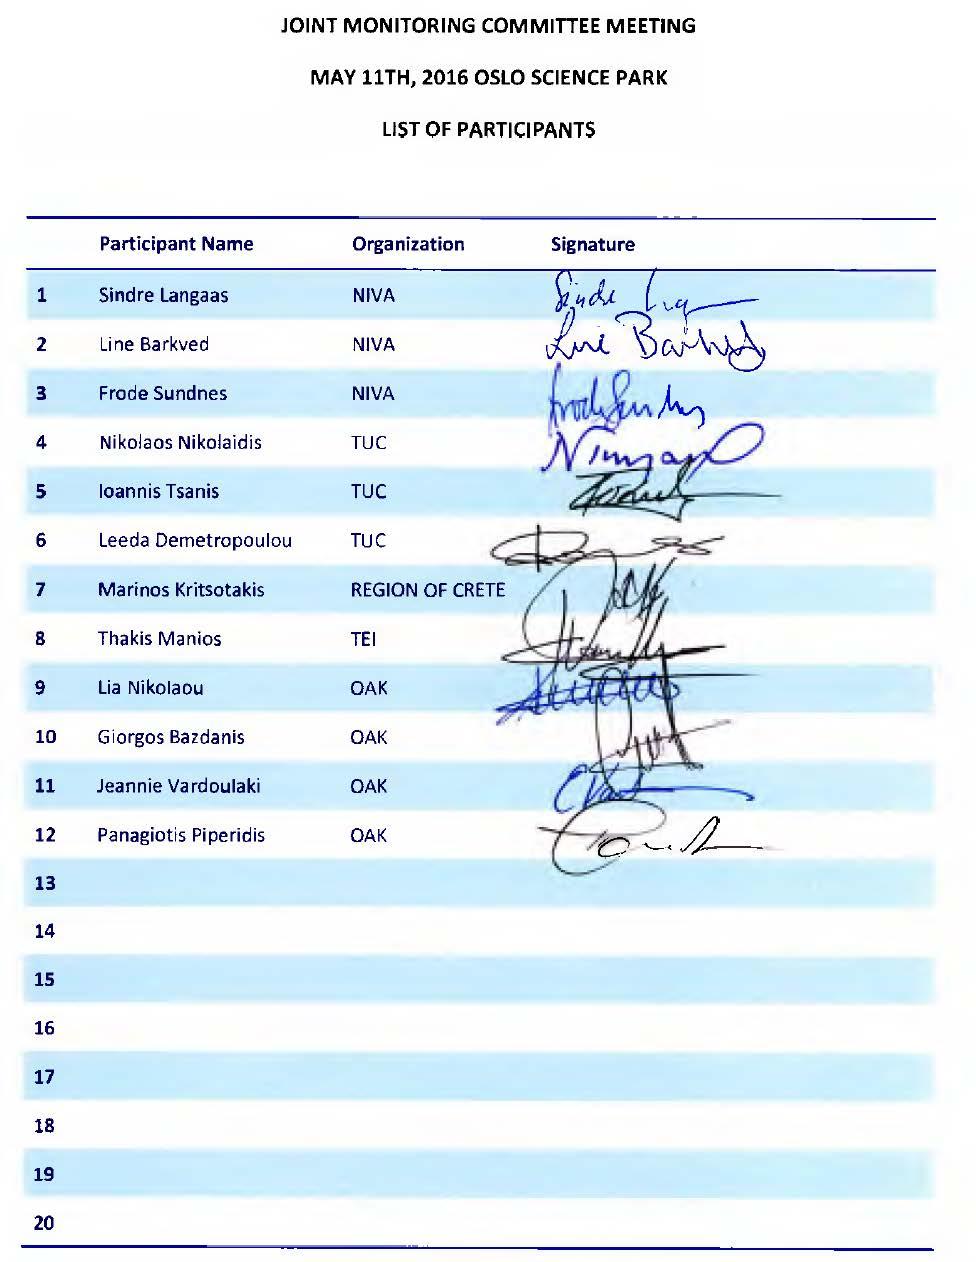 JOINT MONITORING COMMITTEE MEETING
MAY 11TH, 2016 OSLO SCIENCE PARK
LIST OF PARTICIPANTS
Participant Name Organization Signature
1 Sindre Langaas NIVA Sindre
2 Line Barkved NIVA Line Barkved
3 Frode Sundnes NIVA Frode Sundnes
4 Nikolaos Nikolaidis TUC
5 Ioannis Tsanis TUC
6 Leeda Demetropoulou TUC
7 Marinos Kritsotakis REGION OF CRETE
8 Thakis Manios TEI
9 Lia Nikolaou OAK
10 Giorgos Bazdanis OAK
11 Jeannie Vardoulaki OAK
12 Panagiotis Piperidis OAK
13
14
15
16
17
18
19
20